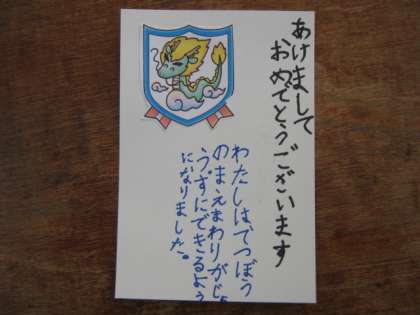 あけまして
おめでとうございます
わたしは、てつぼう
のまえまわりがじょ
うずにできるよう
になりました。